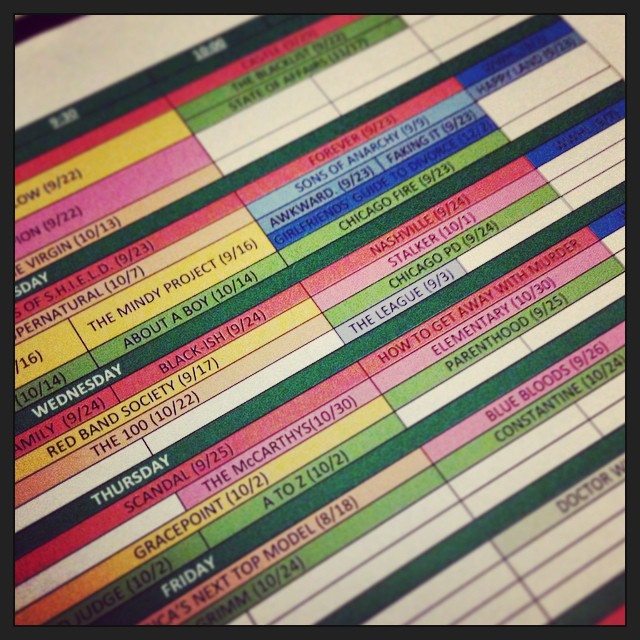 9:30 10:00
CASTLE (9/29)
THE BLACKLIST (9/22)
STATE OF AFFAIRS (11/17)
LOW (9/22)
ION (9/22)
E VIRGIN (10/13)
FOREVER (9/23)
SONS OF ANARCHY (9/9)
HAPPY LAND (9/23)
AWKWARD. (9/23) FAKING IT (9/23)
GIRLFRIENDS' GUIDE TO DIVORCE (12/2)
CHICAGO FIRE (9/23)
SDAY
S OF S.H.I.E.L.D. (9/23)
PERNATURAL (10/7)
THE MINDY PROJECT (9/16)
/16)
ABOUT A BOY (10/14)
(10/14)
WEDNESDAY
NASHVILLE (9/24)
STALKER (10/1)
CHICAGO PD (9/24)
THE LEAGUE (9/3)
AMILY (9/24) BLACK-ISH (9/24)
RED BAND SOCIETY (9/17)
THE 100 (10/22)
THURSDAY
HOW TO GET AWAY WITH MURDER
ELEMENTARY (10/30)
PARENTHOOD (9/25)
SCANDAL (9/25)
THE McCARTHYS(10/30)
GRACEPOINT (10/2)
D JUDGE (10/2) A TO Z (10/2)
FRIDAY
BLUE BLOODS (9/26)
CONSTANTINE (10/24)
ICA'S NEXT TOP MODEL (8/18)
GRIMM (10/24)
DOCTOR W